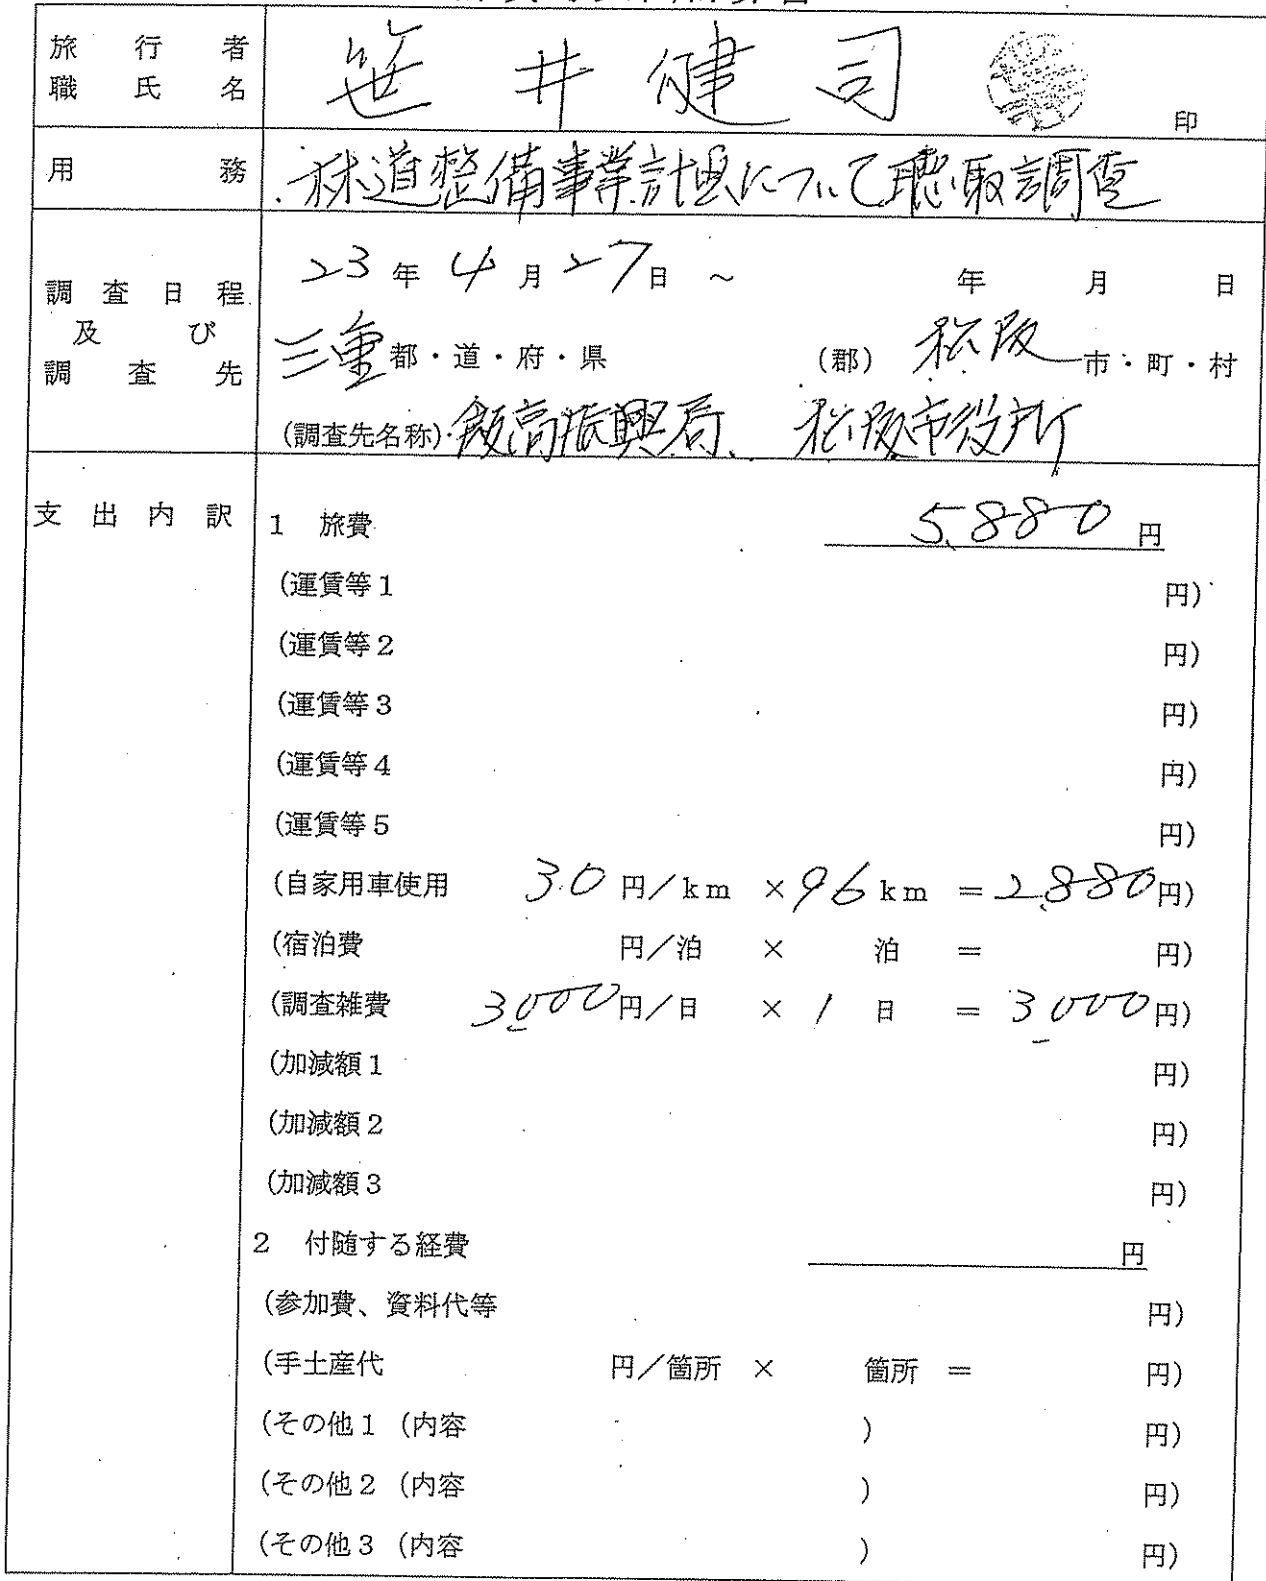 旅行者
職氏名
笹井健司
印
用務
林道整備事業計画について聴取調査
調査日程
及び
調査先
23年4月27日～ 年 月 日
三重都・道・府・県 (郡) 松阪市・町・村
(調査先名称) 飯高振興局、松阪市役所
支出内訳
1 旅費 5,880円
(運賃等1 円)
(運賃等2 円)
(運賃等3 円)
(運賃等4 円)
(運賃等5 円)
(自家用車使用 30円/km ×96km =2,880円)
(宿泊費 円/泊 × 泊 = 円)
(調査雑費 3,000円/日 × 1日 = 3,000円)
(加減額1 円)
(加減額2 円)
(加減額3 円)
2 付随する経費 円
(参加費、資料代等 円)
(手土産代 円/箇所 × 箇所 = 円)
(その他1 (内容 ) 円)
(その他2 (内容 ) 円)
(その他3 (内容 ) 円)